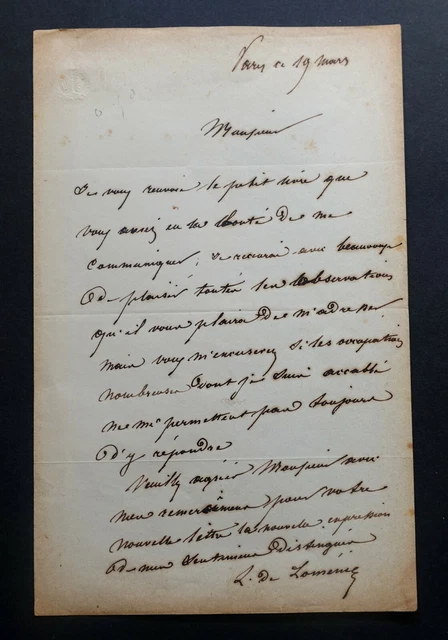 Paris ce 19 mars
Monsieur
Je vous renvoie le petit livre que
vous aviez eu la bonté de me
communiquer ; je recevrai avec beaucoup
de plaisir toutes les observations
qu'il vous plaira de m'adresser
mais vous m'excuserez si les occupations
nombreuses dont je suis accablé
ne me permettent pas toujours
d'y répondre
Veuillez agréer Monsieur avec
mes remerciemens pour votre
nouvelle lettre la nouvelle expression
de mes sentimens distingués
L. de Loménie